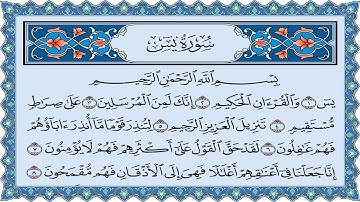 سُورَةُ يسٓ
بِسْمِ اللَّهِ الرَّحْمَٰنِ الرَّحِيمِ
يسٓ ١ وَالْقُرْءَانِ الْحَكِيمِ ٢ إِنَّكَ لَمِنَ الْمُرْسَلِينَ ٣ عَلَىٰ صِرَاطٍ
مُّسْتَقِيمٍ ٤ تَنزِيلَ الْعَزِيزِ الرَّحِيمِ ٥ لِتُنذِرَ قَوْمًا مَّا أُنذِرَ ءَابَاؤُهُمْ
فَهُمْ غَافِلُونَ ٦ لَقَدْ حَقَّ الْقَوْلُ عَلَىٰ أَكْثَرِهِمْ فَهُمْ لَا يُؤْمِنُونَ ٧
إِنَّا جَعَلْنَا فِي أَعْنَاقِهِمْ أَغْلَالًا فَهِيَ إِلَى الْأَذْقَانِ فَهُم مُّقْمَحُونَ ٨